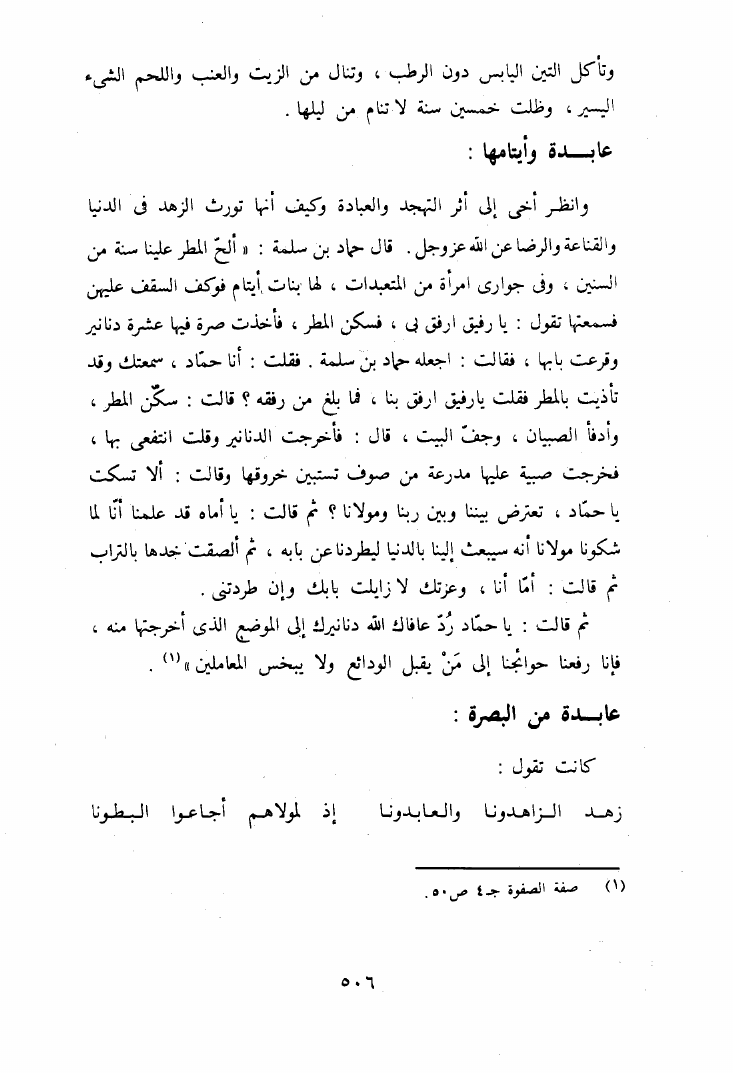 وتأكل التين اليابس دون الرطب ، وتنال من الزيت والعنب واللحم الشىء
اليسير ، وظلت خمسين سنة لا تنام من ليلها .
عابـــدة وأيتامها :
وانظر أخى إلى أثر التهجد والعبادة وكيف أنها تورث الزهد فى الدنيا
والقناعة والرضا عن الله عز وجل . قال حماد بن سلمة : « ألحّ المطر علينا سنة من
السنين ، وفى جوارى امرأة من المتعبدات ، لها بنات أيتام فوكف السقف عليهن
فسمعتها تقول : يا رفيق ارفق بى ، فسكن المطر ، فأخذت صرة فيها عشرة دنانير
وقرعت بابها ، فقالت : اجعله حماد بن سلمة . فقلت : أنا حمّاد ، سمعتك وقد
تأذيت بالمطر فقلت يارفيق ارفق بنا ، فما بلغ من رفقه ؟ قالت : سكّن المطر ،
وأدفأ الصبيان ، وجفّ البيت ، قال : فأخرجت الدنانير وقلت انتفعى بها ،
فخرجت صبية عليها مدرعة من صوف تستبين خروقها وقالت : ألا تسكت
يا حمّاد ، تعترض بيننا وبين ربنا ومولانا ؟ ثم قالت : يا أماه قد علمنا أنّا لما
شكونا مولانا أنه سيبعث إلينا بالدنيا ليطردنا عن بابه ، ثم ألصقت خدها بالتراب
ثم قالت : أمّا أنا ، وعزتك لا زايلت بابك وإن طردتنى .
ثم قالت : يا حمّاد رُدّ عافاك الله دنانيرك إلى الموضع الذى أخرجتها منه ،
فإنا رفعنا حوائجنا إلى مَنْ يقبل الودائع ولا يبخس المعاملين » (١) .
عابـــدة من البصرة :
كانت تقول :
زهـد الـزاهـدونـا والعـابـدونـا إذ لمولاهـم أجـاعـوا البـطـونا
(١) صفة الصفوة جـ٤ ص٥٠ .
٥٠٦